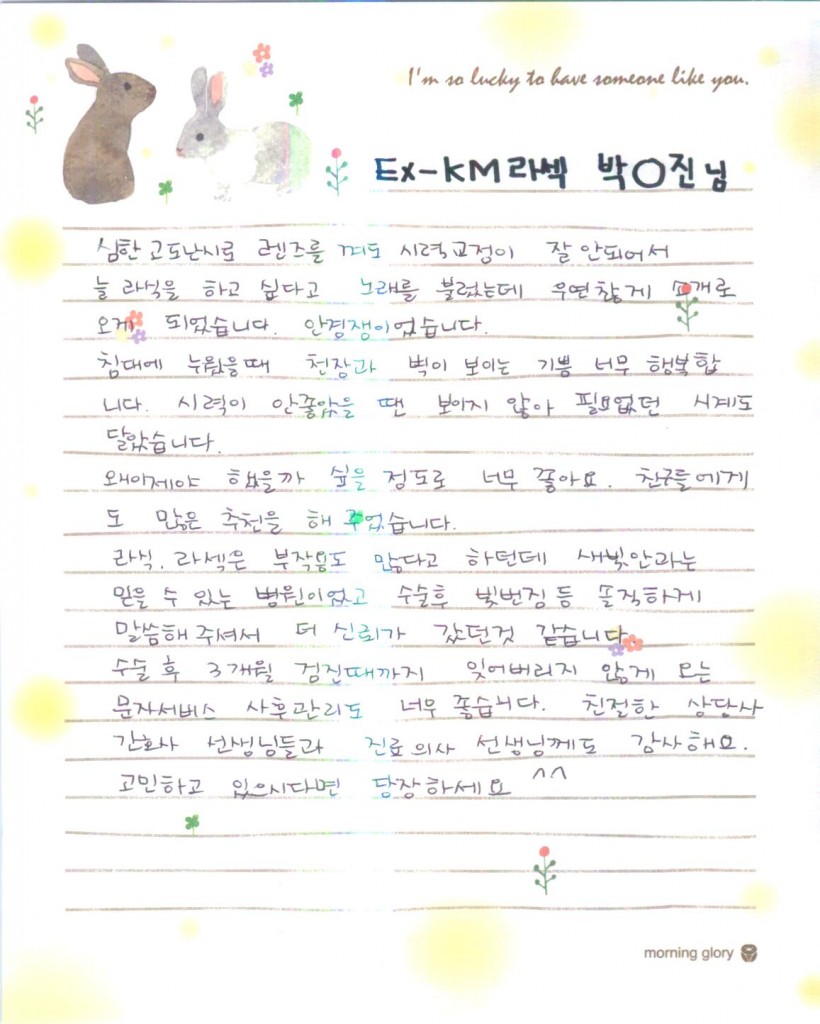 I'm so lucky to have someone like you.
Ex-KM라섹 박O진님
심한 고도난시로 렌즈를 껴도 시력교정이 잘 안되어서
늘 라식을 하고 싶다고 노래를 불렀는데 우연찮게 소개로
오게 되었습니다. 안경쟁이었습니다.
침대에 누웠을때 천장과 벽이 보이는 기쁨 너무 행복합
니다. 시력이 안좋았을 땐 보이지 않아 필요없던 시계도
달았습니다.
왜이제야 했을까 싶을 정도로 너무 좋아요. 친구들에게
도 많은 추천을 해 주었습니다.
라식. 라섹은 부작용도 많다고 하던데 새빛안과는
믿을 수 있는 병원이었고 수술후 빛번짐 등 솔직하게
말씀해주셔서 더 신뢰가 갔던것 같습니다.
수술 후 3개월 검진때까지 잊어버리지 않게 오는
문자서비스 사후관리도 너무 좋습니다. 친절한 상담사
간호사 선생님들과 진료의사 선생님께도 감사해요.
고민하고 있으시다면 당장하세요 ^^
morning glory